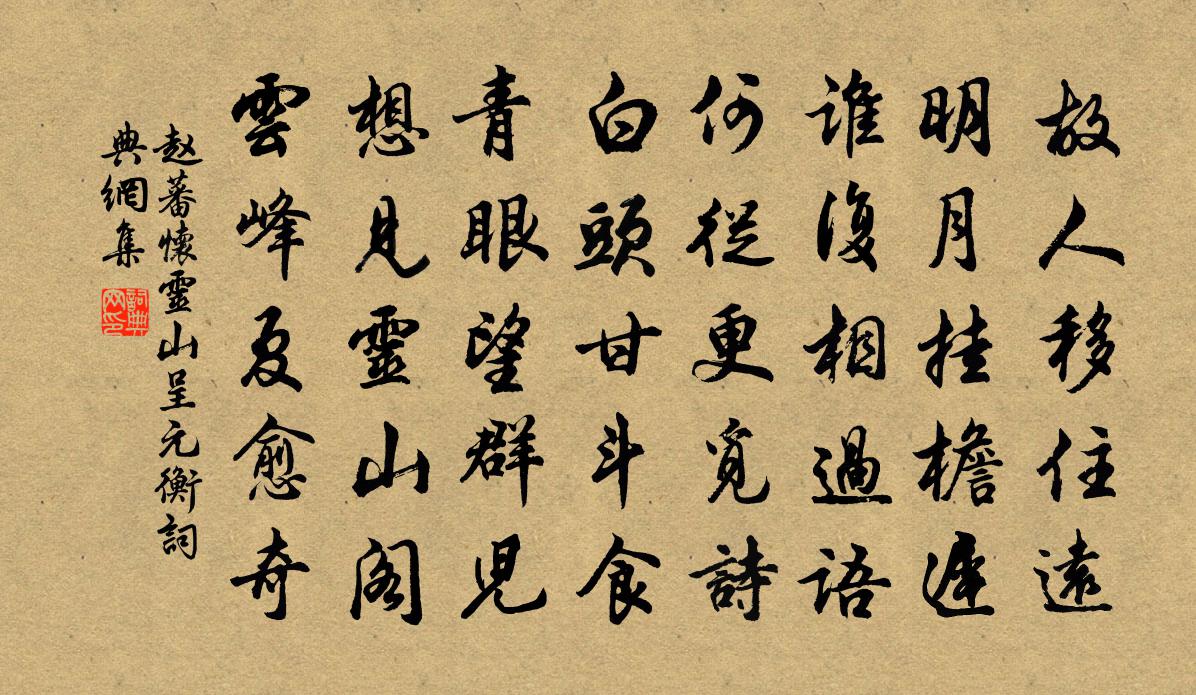 故人移住遠
明月挂檐遲
誰復相過語
何從更覓詩
白頭甘斗食
青眼望群児
想見靈山閣
雲峰夏愈奇
赵蕃懷靈山呈元衡詞
典網集
詞典網印